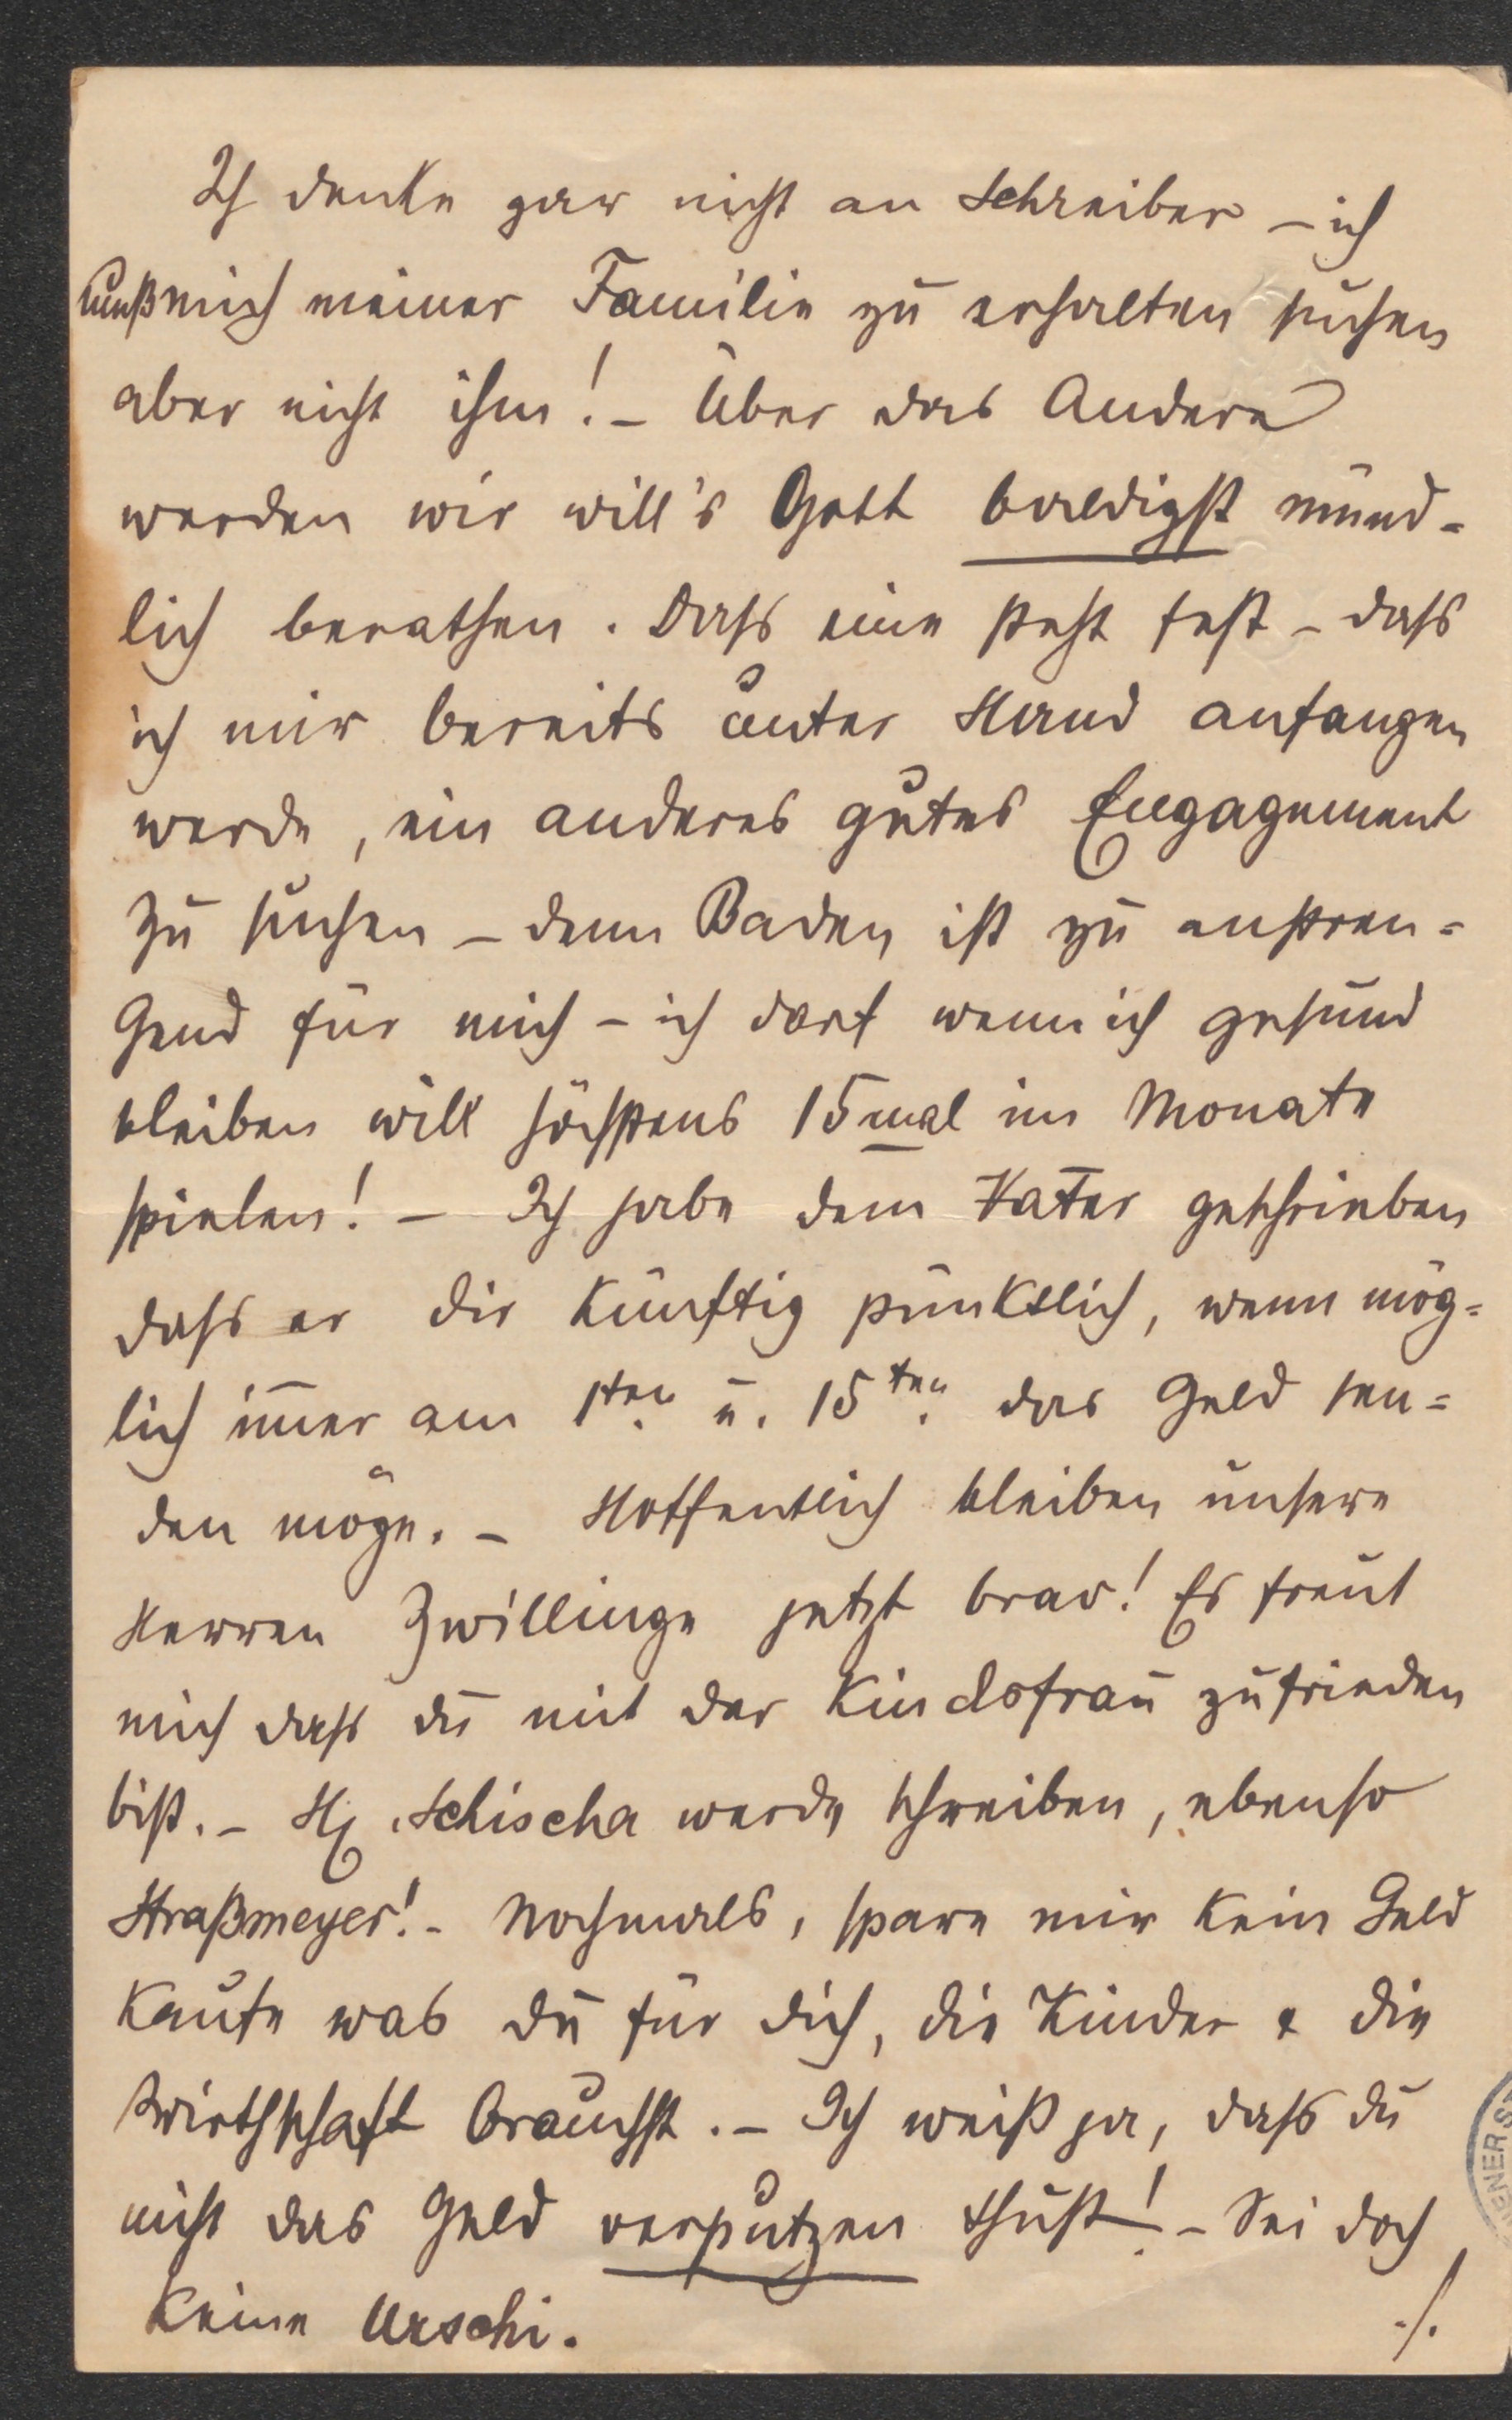 Ich denke gar nicht an Schreiber – ich
muß mich meiner Familie zu erhalten suchen
aber nicht ihm! – Über das Andere
werden wir will's Gott baldigst münd-
lich berathen. Dass eine steht fest – dass
ich mir bereits unter Hand anfangen
werde, ein anderes gutes Engagement
zu suchen – denn Baden ist zu anstren-
gend für mich – ich darf wenn ich gesund
bleiben will höchstens 15mal im Monate
spielen! – Ich habe dem Vater geschrieben
dass er dir künftig pünktlich, wenn mög-
lich im̅er am 1ten u. 15ten das Geld sen-
den möge. – Hoffentlich bleiben unsere
Herren Zwillinge jetzt brav! Es freut
mich dass du mit der Kindsfrau zufrieden
bist. – H. Schischa werde schreiben, ebenso
Straßmeyer! – Nochmals, spare mir kein Geld
kaufe was du für dich, die Kinder & die
Wirthschaft brauchst. – Ich weiß ja, dass du
nicht das Geld verputzen thust! – Sei doch
keine Urschi.
./.
ENERS